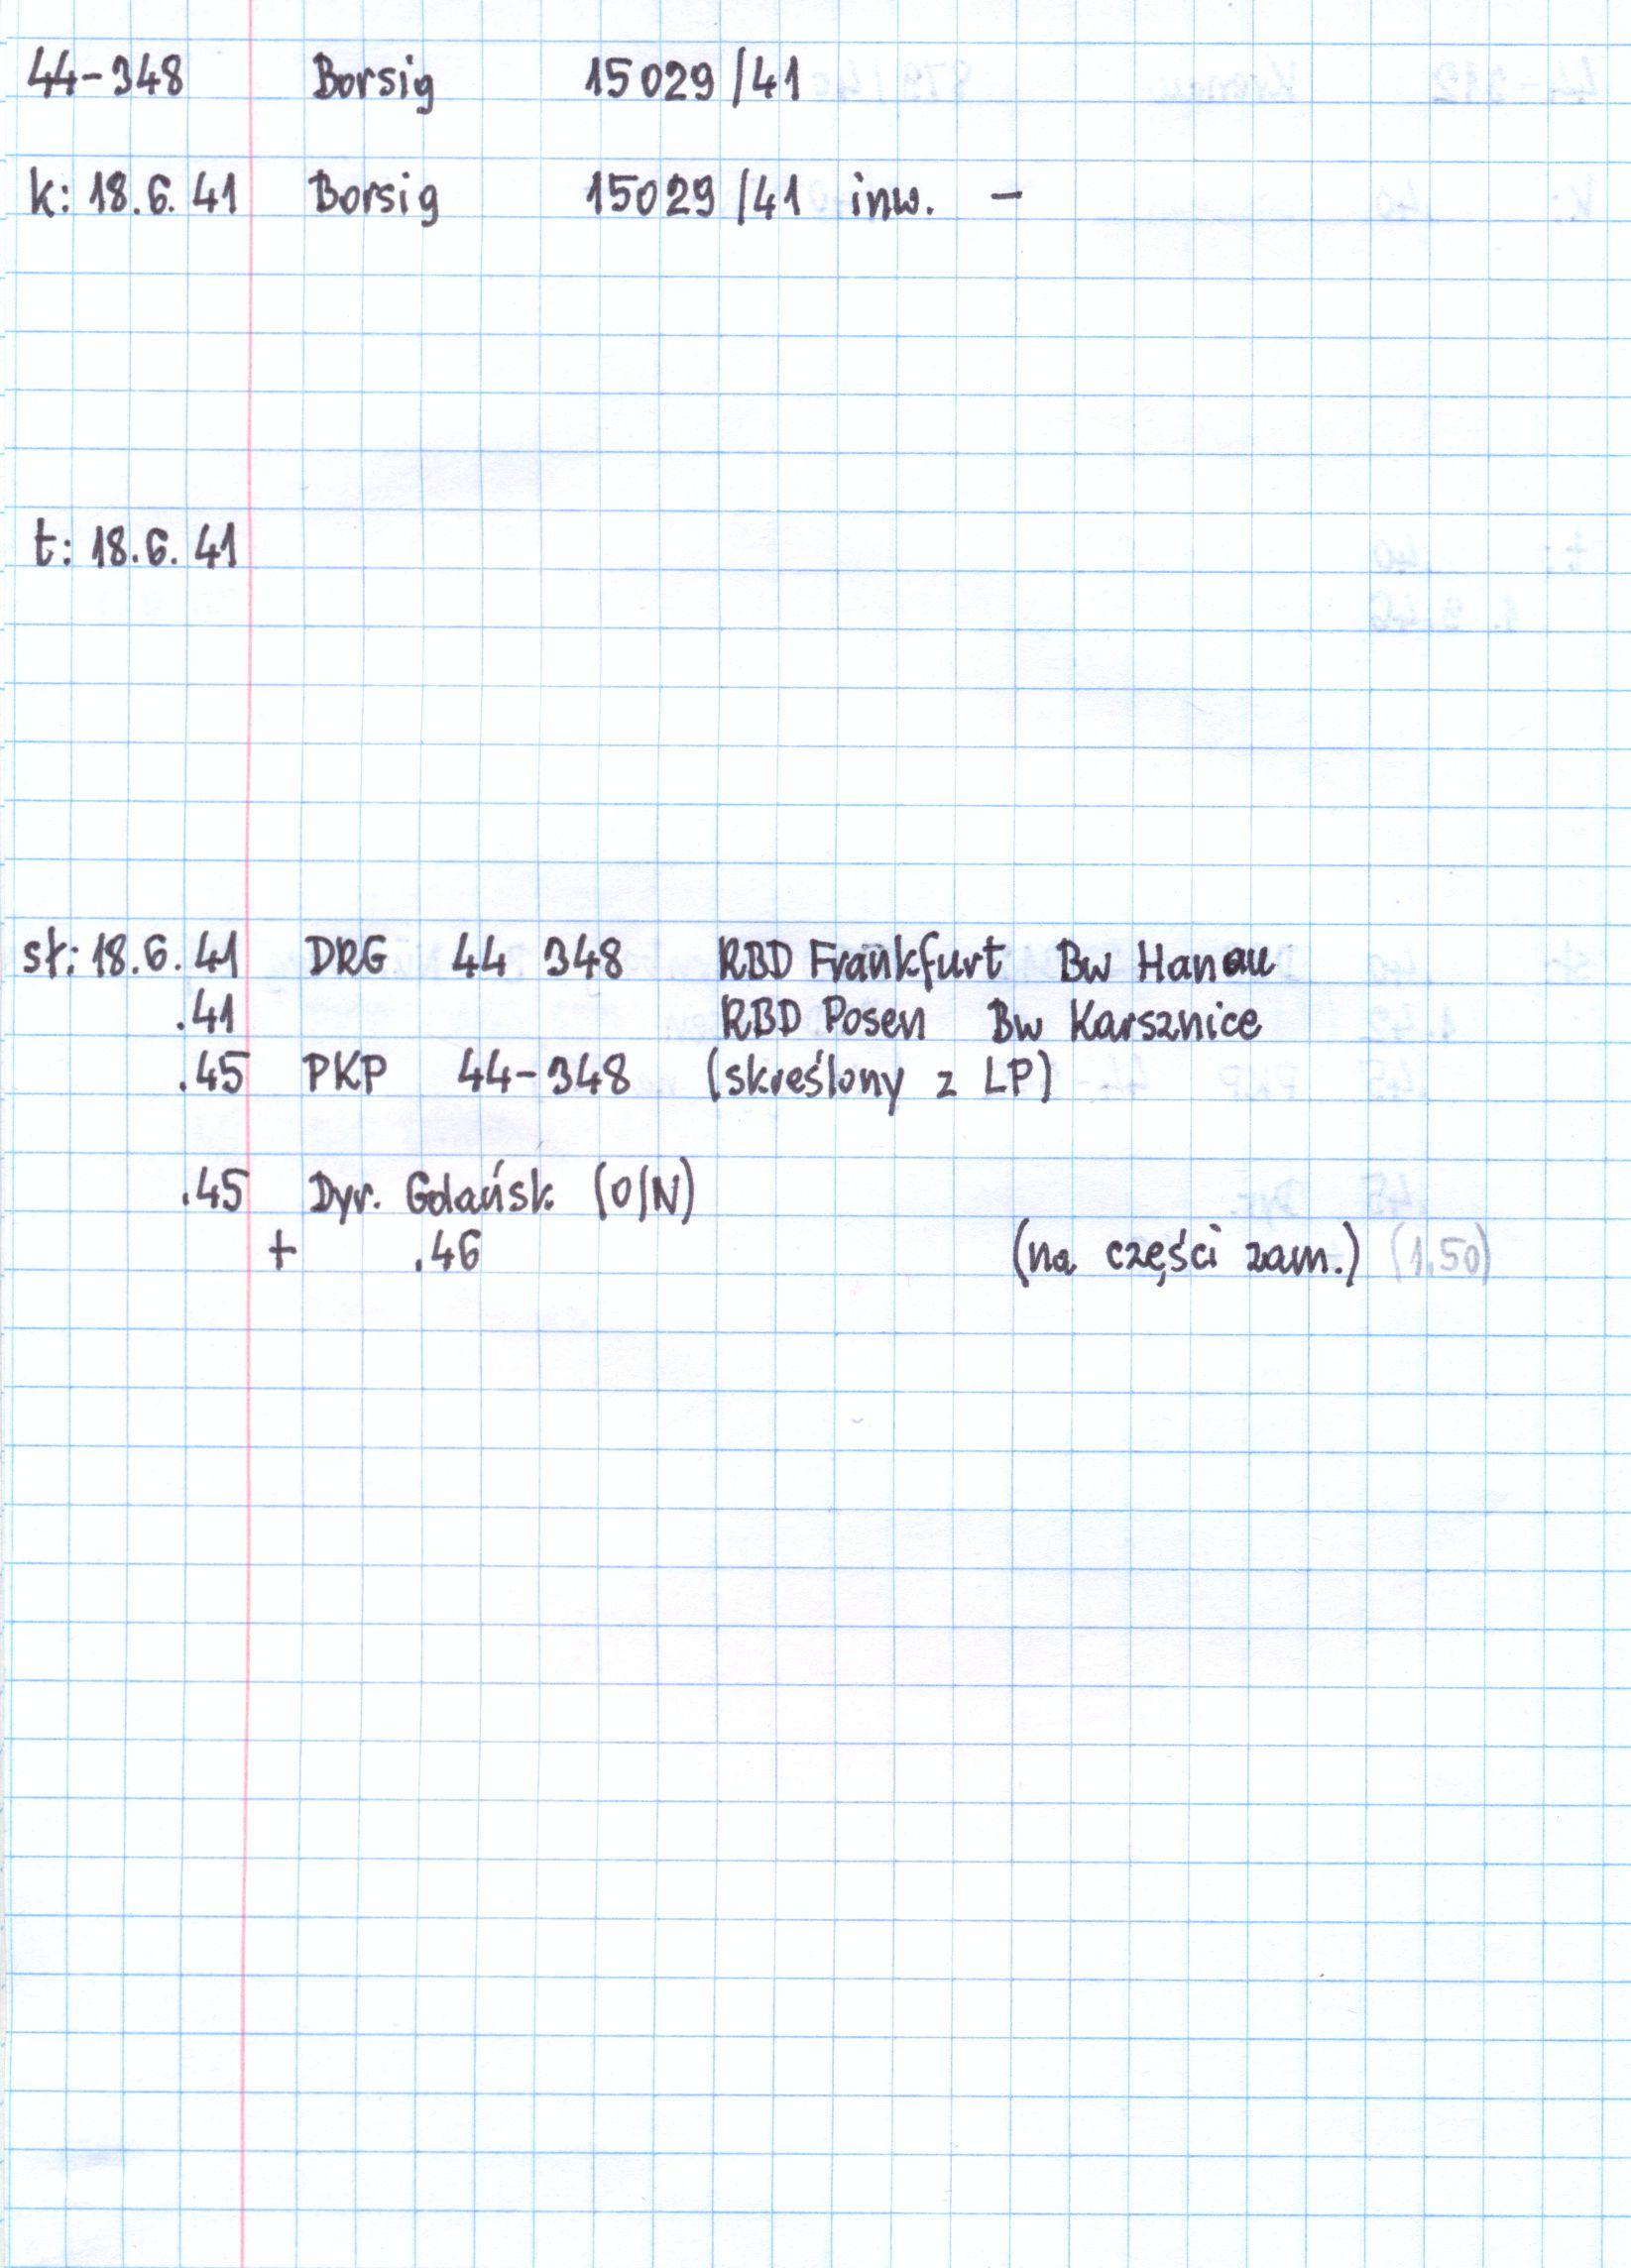 44-348 Borsig 15029/41
k: 18.6.41 Borsig 15029/41 inw. -
t: 18.6.41
sł: 18.6.41 DRG 44 348 RBD Frankfurt Bw Hanau
.41 RBD Posen Bw Karsznice
.45 PKP 44-348 (skreślony z LP)
.45 Dyr. Gdańsk (O/N)
+ .46 (na części zam.) (1.50)